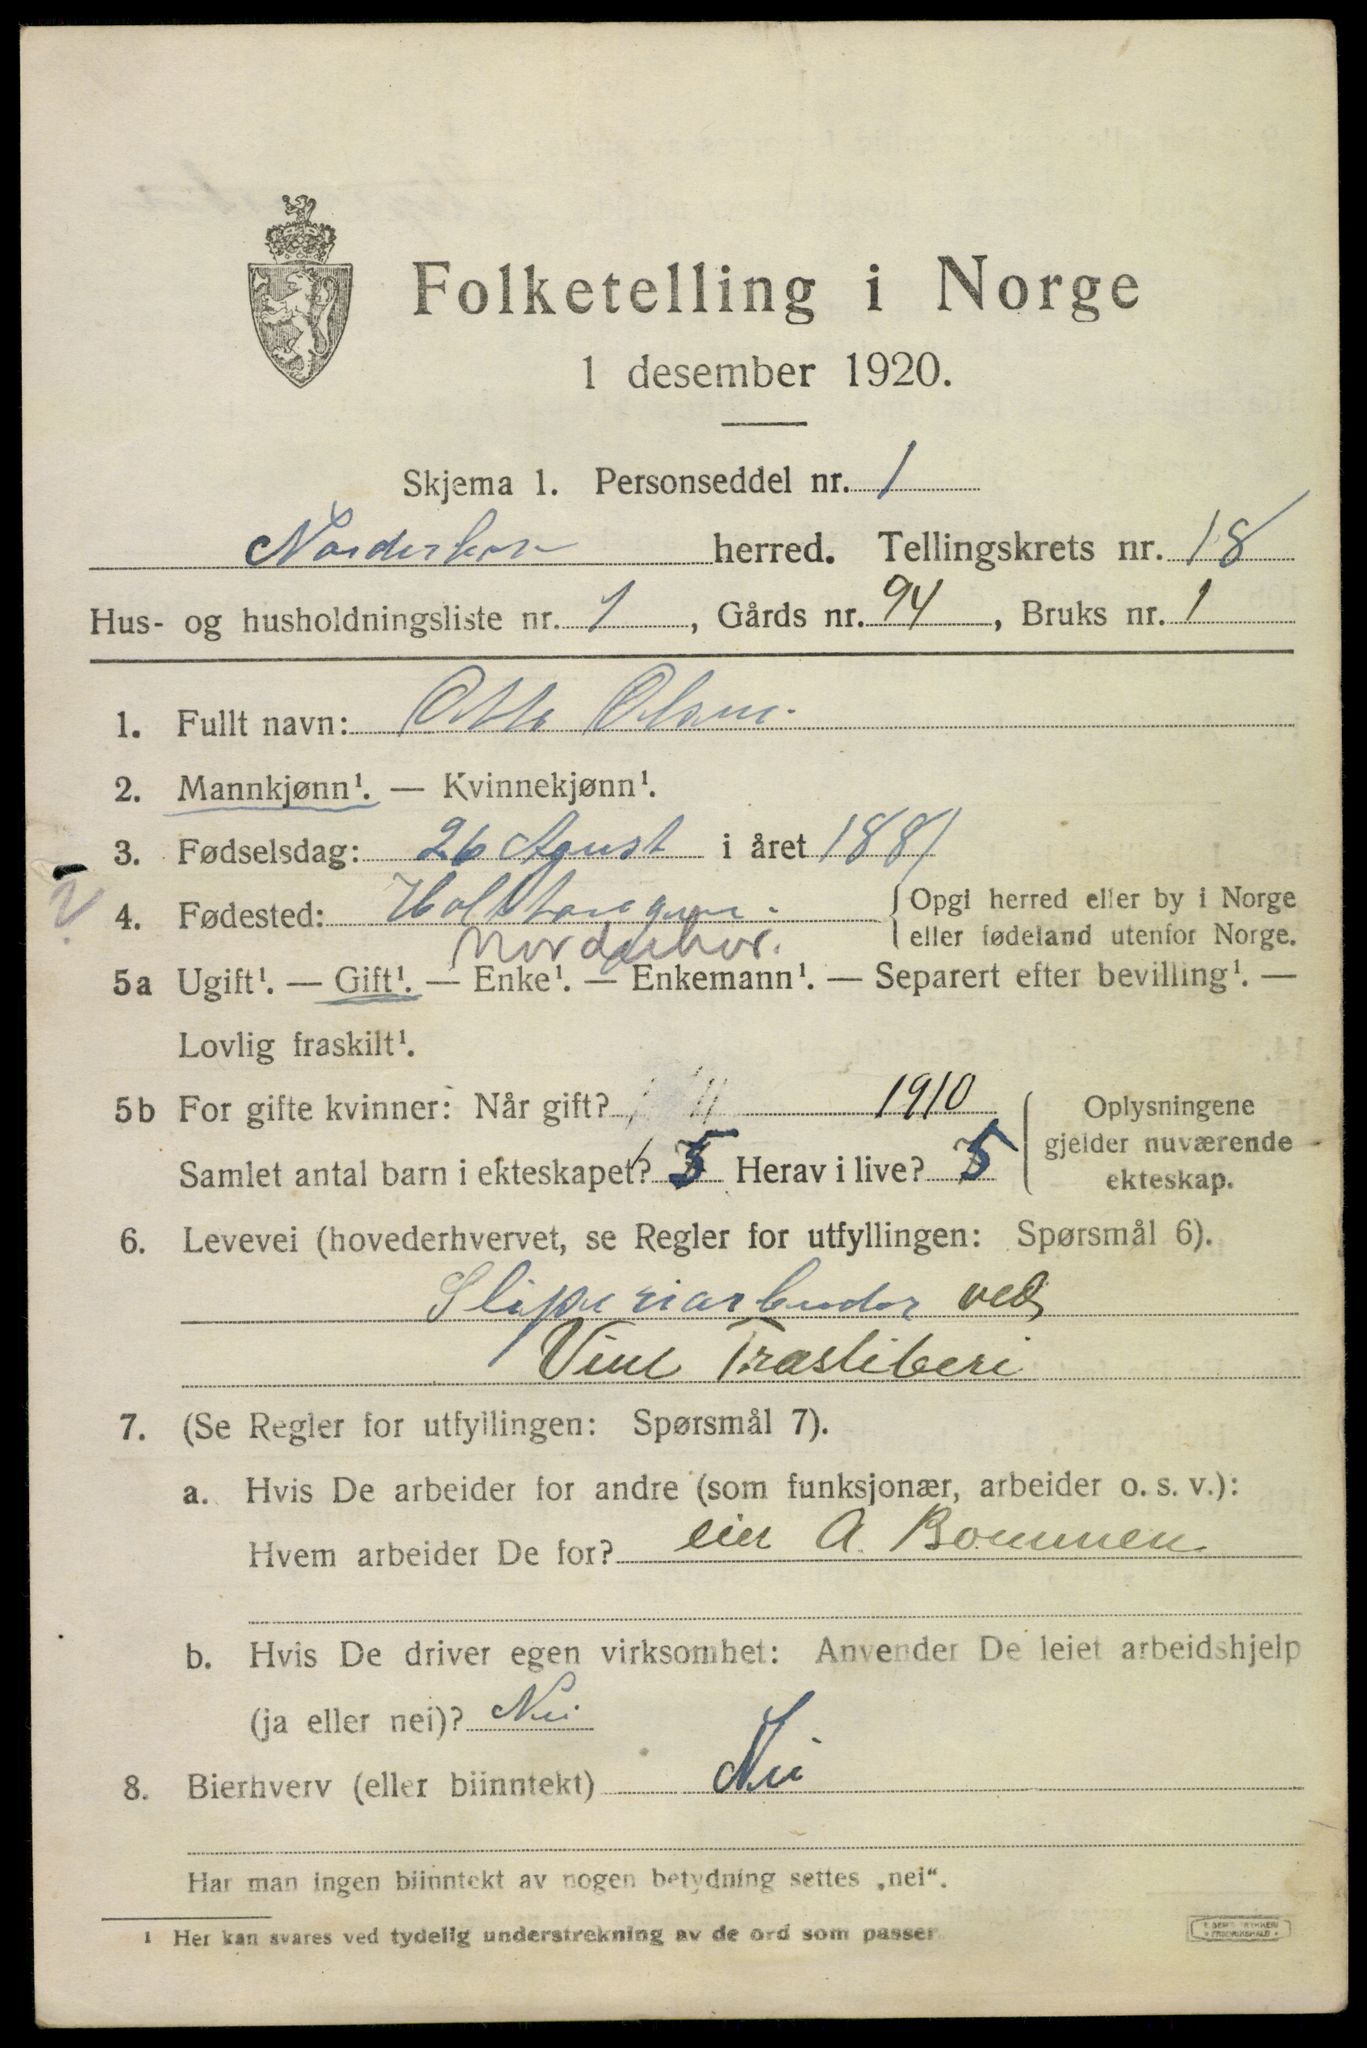 Folketelling i Norge
1 desember 1920.
Skjema 1. Personseddel nr. 1
Norderhov herred. Tellingskrets nr. 18
Hus- og husholdningsliste nr. 1, Gårds nr. 94, Bruks nr. 1
1. Fullt navn: Otto Olsen.
2. Mannkjønn¹. — Kvinnekjønn¹.
3. Fødselsdag: 26 Agust i året 1881
4. Fødested:
Norderhov.
{ Opgi herred eller by i Norge
eller fødeland utenfor Norge.
5a Ugift¹. — Gift¹. — Enke¹. — Enkemann¹. — Separert efter bevilling¹. —
Lovlig fraskilt¹.
5b For gifte kvinner: Når gift? 1910
Samlet antal barn i ekteskapet? 5 Herav i live? 5
{ Oplysningene
gjelder nuværende
ekteskap.
6. Levevei (hovederhvervet, se Regler for utfyllingen: Spørsmål 6).
Sliperiarbeider ved
Viul Træsliberi
7. (Se Regler for utfyllingen: Spørsmål 7).
a. Hvis De arbeider for andre (som funksjonær, arbeider o. s. v.):
Hvem arbeider De for? eier A. Bommen
b. Hvis De driver egen virksomhet: Anvender De leiet arbeidshjelp
(ja eller nei)? Nei
8. Bierhverv (eller biinntekt) Nei
Har man ingen biinntekt av nogen betydning settes „nei“.
¹ Her kan svares ved tydelig understrekning av de ord som passer.